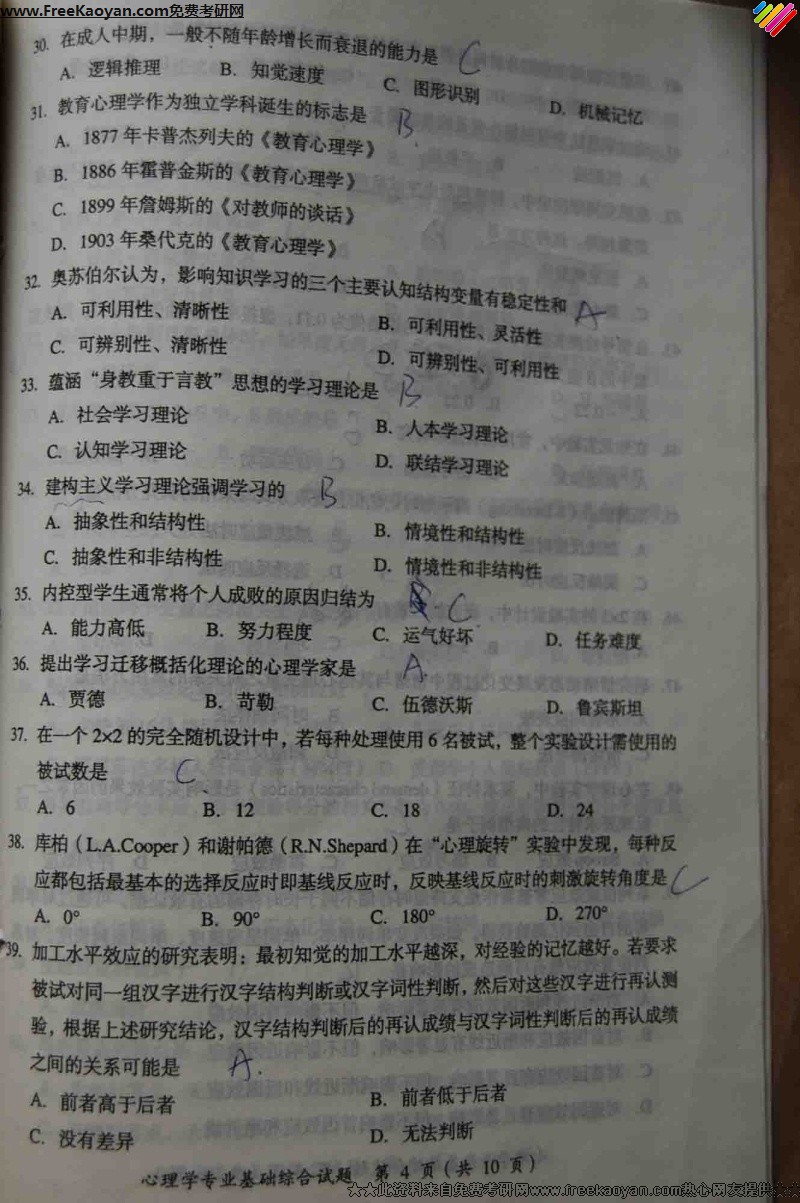 www.FreeKaoyan.com免费考研网
30. 在成人中期，一般不随年龄增长而衰退的能力是 C
A. 逻辑推理 B. 知觉速度 C. 图形识别 D. 机械记忆
31. 教育心理学作为独立学科诞生的标志是 B
A. 1877年卡普杰列夫的《教育心理学》
B. 1886年霍普金斯的《教育心理学》
C. 1899年詹姆斯的《对教师的谈话》
D. 1903年桑代克的《教育心理学》
32. 奥苏伯尔认为，影响知识学习的三个主要认知结构变量有稳定性和 A
A. 可利用性、清晰性 B. 可利用性、灵活性
C. 可辨别性、清晰性 D. 可辨别性、可利用性
33. 蕴涵“身教重于言教”思想的学习理论是 B
A. 社会学习理论 B. 人本学习理论
C. 认知学习理论 D. 联结学习理论
34. 建构主义学习理论强调学习的 B
A. 抽象性和结构性 B. 情境性和结构性
C. 抽象性和非结构性 D. 情境性和非结构性
35. 内控型学生通常将个人成败的原因归结为 C
A. 能力高低 B. 努力程度 C. 运气好坏 D. 任务难度
36. 提出学习迁移概括化理论的心理学家是 A.
A. 贾德 B. 苛勒 C. 伍德沃斯 D. 鲁宾斯坦
37. 在一个2×2的完全随机设计中，若每种处理使用6名被试，整个实验设计需使用的
被试数是 C
A. 6 B. 12 C. 18 D. 24
38. 库柏（L.A.Cooper）和谢帕德（R.N.Shepard）在“心理旋转”实验中发现，每种反
应都包括最基本的选择反应时即基线反应时，反映基线反应时的刺激旋转角度是 C
A. 0° B. 90° C. 180° D. 270°
39. 加工水平效应的研究表明：最初知觉的加工水平越深，对经验的记忆越好。若要求
被试对同一组汉字进行汉字结构判断或汉字词性判断，然后对这些汉字进行再认测
验，根据上述研究结论，汉字结构判断后的再认成绩与汉字词性判断后的再认成绩
之间的关系可能是 A.
A. 前者高于后者 B. 前者低于后者
C. 没有差异 D. 无法判断
心理学专业基础综合试题 第4页（共10页）
☆☆此资料来自免费考研网www.freekaoyan.com热心网友提供☆☆